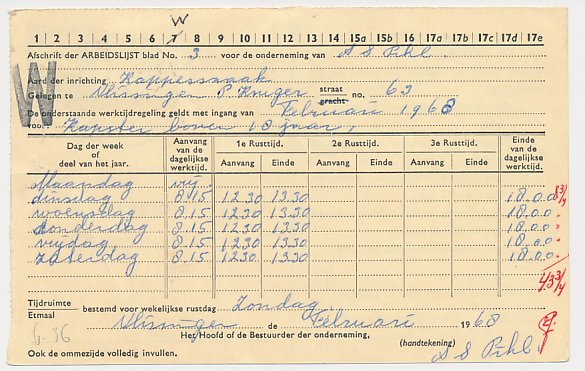 W
1 2 3 4 5 6 7 8 9 10 11 12 13 14 15a 15b 16a 16b 17a 17b 17c 17d 17e
Afschrift der ARBEIDSLIJST blad No. 3 voor de onderneming van S S Pihl.
W
Aard der inrichting Kapperszaak
Gelegen te Vlissingen P Kruger straat gracht no. 63
De onderstaande werktijdregeling geldt met ingang van Februari 1968
voor: Kapster boven 18 jaar,
Dag der week of deel van het jaar. Aanvang van de dagelijkse werktijd. 1e Rusttijd. 2e Rusttijd. 3e Rusttijd. Einde van de dagelijkse werktijd.
Aanvang Einde Aanvang Einde Aanvang Einde
Maandag vrij.
dinsdag 8.15 12.30 13.30 18.00 8 3/4
woensdag 8.15 12.30 13.30 18.00
donderdag 8.15 12.30 13.30 18.00
vrijdag 8.15 12.30 13.30 18.00
zaterdag 8.15 12.30 13.30 18.00
43 3/4
Tijdruimte Etmaal bestemd voor wekelijkse rustdag Zondag.
Vlissingen de Februari 1968
G-36
Het Hoofd of de Bestuurder der onderneming,
(handtekening) S S Pihl.
Ook de ommezijde volledig invullen.